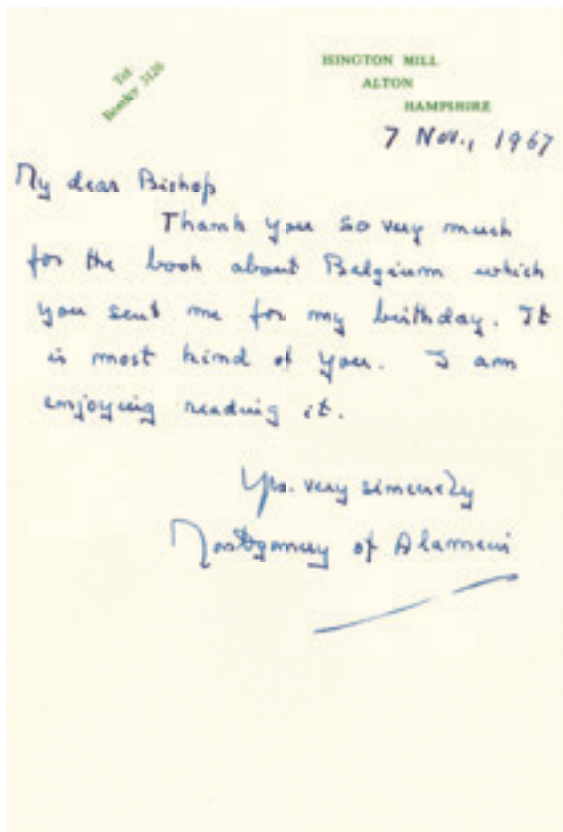 Tel
Bentley 3126
ISINGTON MILL
ALTON
HAMPSHIRE
7 Nov., 1967
My dear Bishop
Thank you so very much
for the book about Belgium which
you sent me for my birthday. It
is most kind of you. I am
enjoying reading it.
Yrs. very sincerely
Montgomery of Alamein